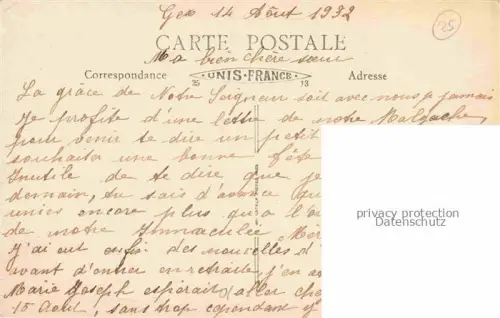 Gex 14 Août 1932
25
CARTE POSTALE
Ma bien chère sœur
Correspondance UNIS-FRANCE Adresse
25 13
La grâce de Notre Seigneur soit avec nous p jamais
Je profite d'une lettre de notre Malgache
pour venir te dire un petit
souhaiter une bonne fête
Inutile de te dire que je
demain, tu sais d'avance qu
unies encore plus qu'à l'o
de notre Immaculée Mèr
J'ai eut enfin des nouvelles d
avant d'entrer en retraite, j'en
Marie Joseph espérait aller che
15 Août, sans trop cependant
privacy protection
Datenschutz